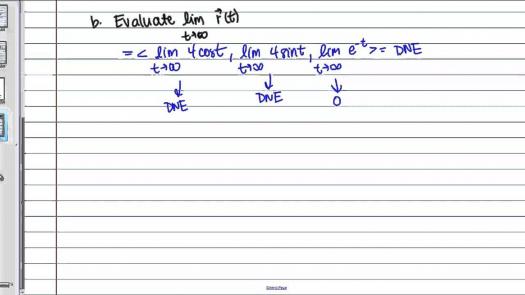 b. Evaluate lim r⃗(t)
t→∞
= < lim 4cost, lim 4sint, lim e^-t > = DNE
t→∞ t→∞ t→∞
↓ ↓ ↓
DNE DNE 0